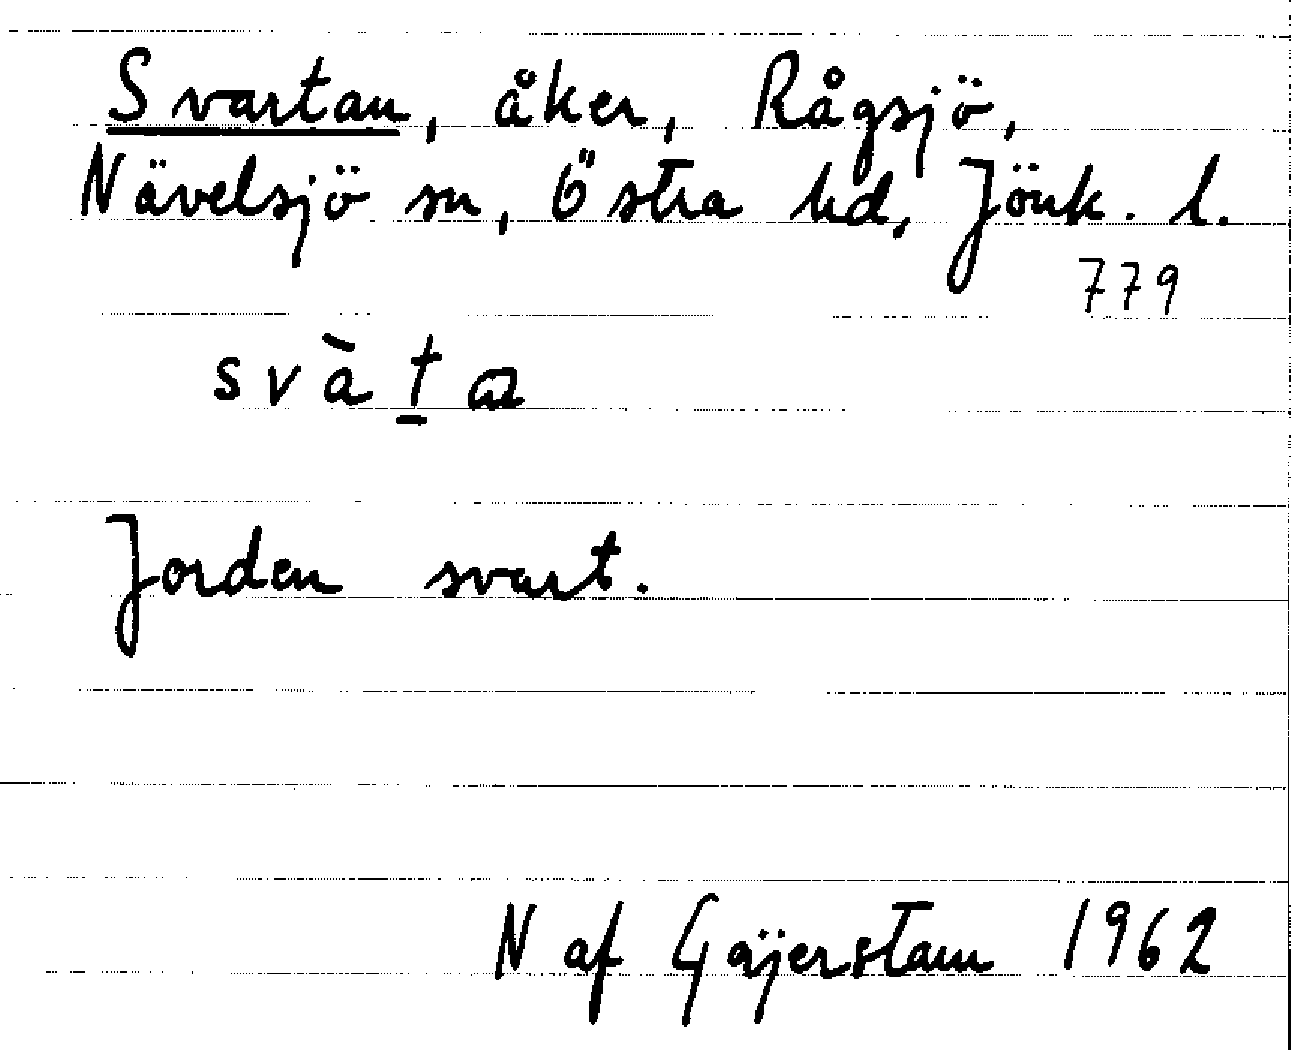 Svartan, åker, Rågsjö,
Nävelsjö sn, Östra hd, Jönk. l.
779
svàṯa
Jorden svart.
N af Gäjerstam 1962